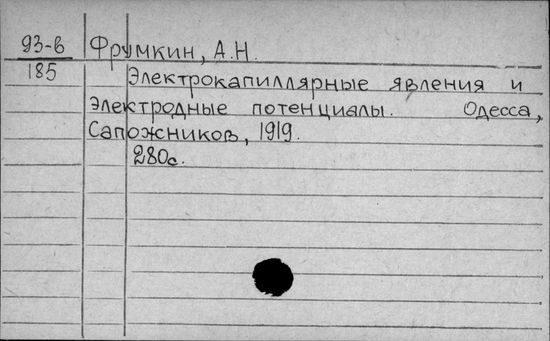 93-в Фрумкин, А.Н.
185
Электрокапиллярные явления и
электродные потенциалы. Одесса,
Сапожников, 1919.
280с.